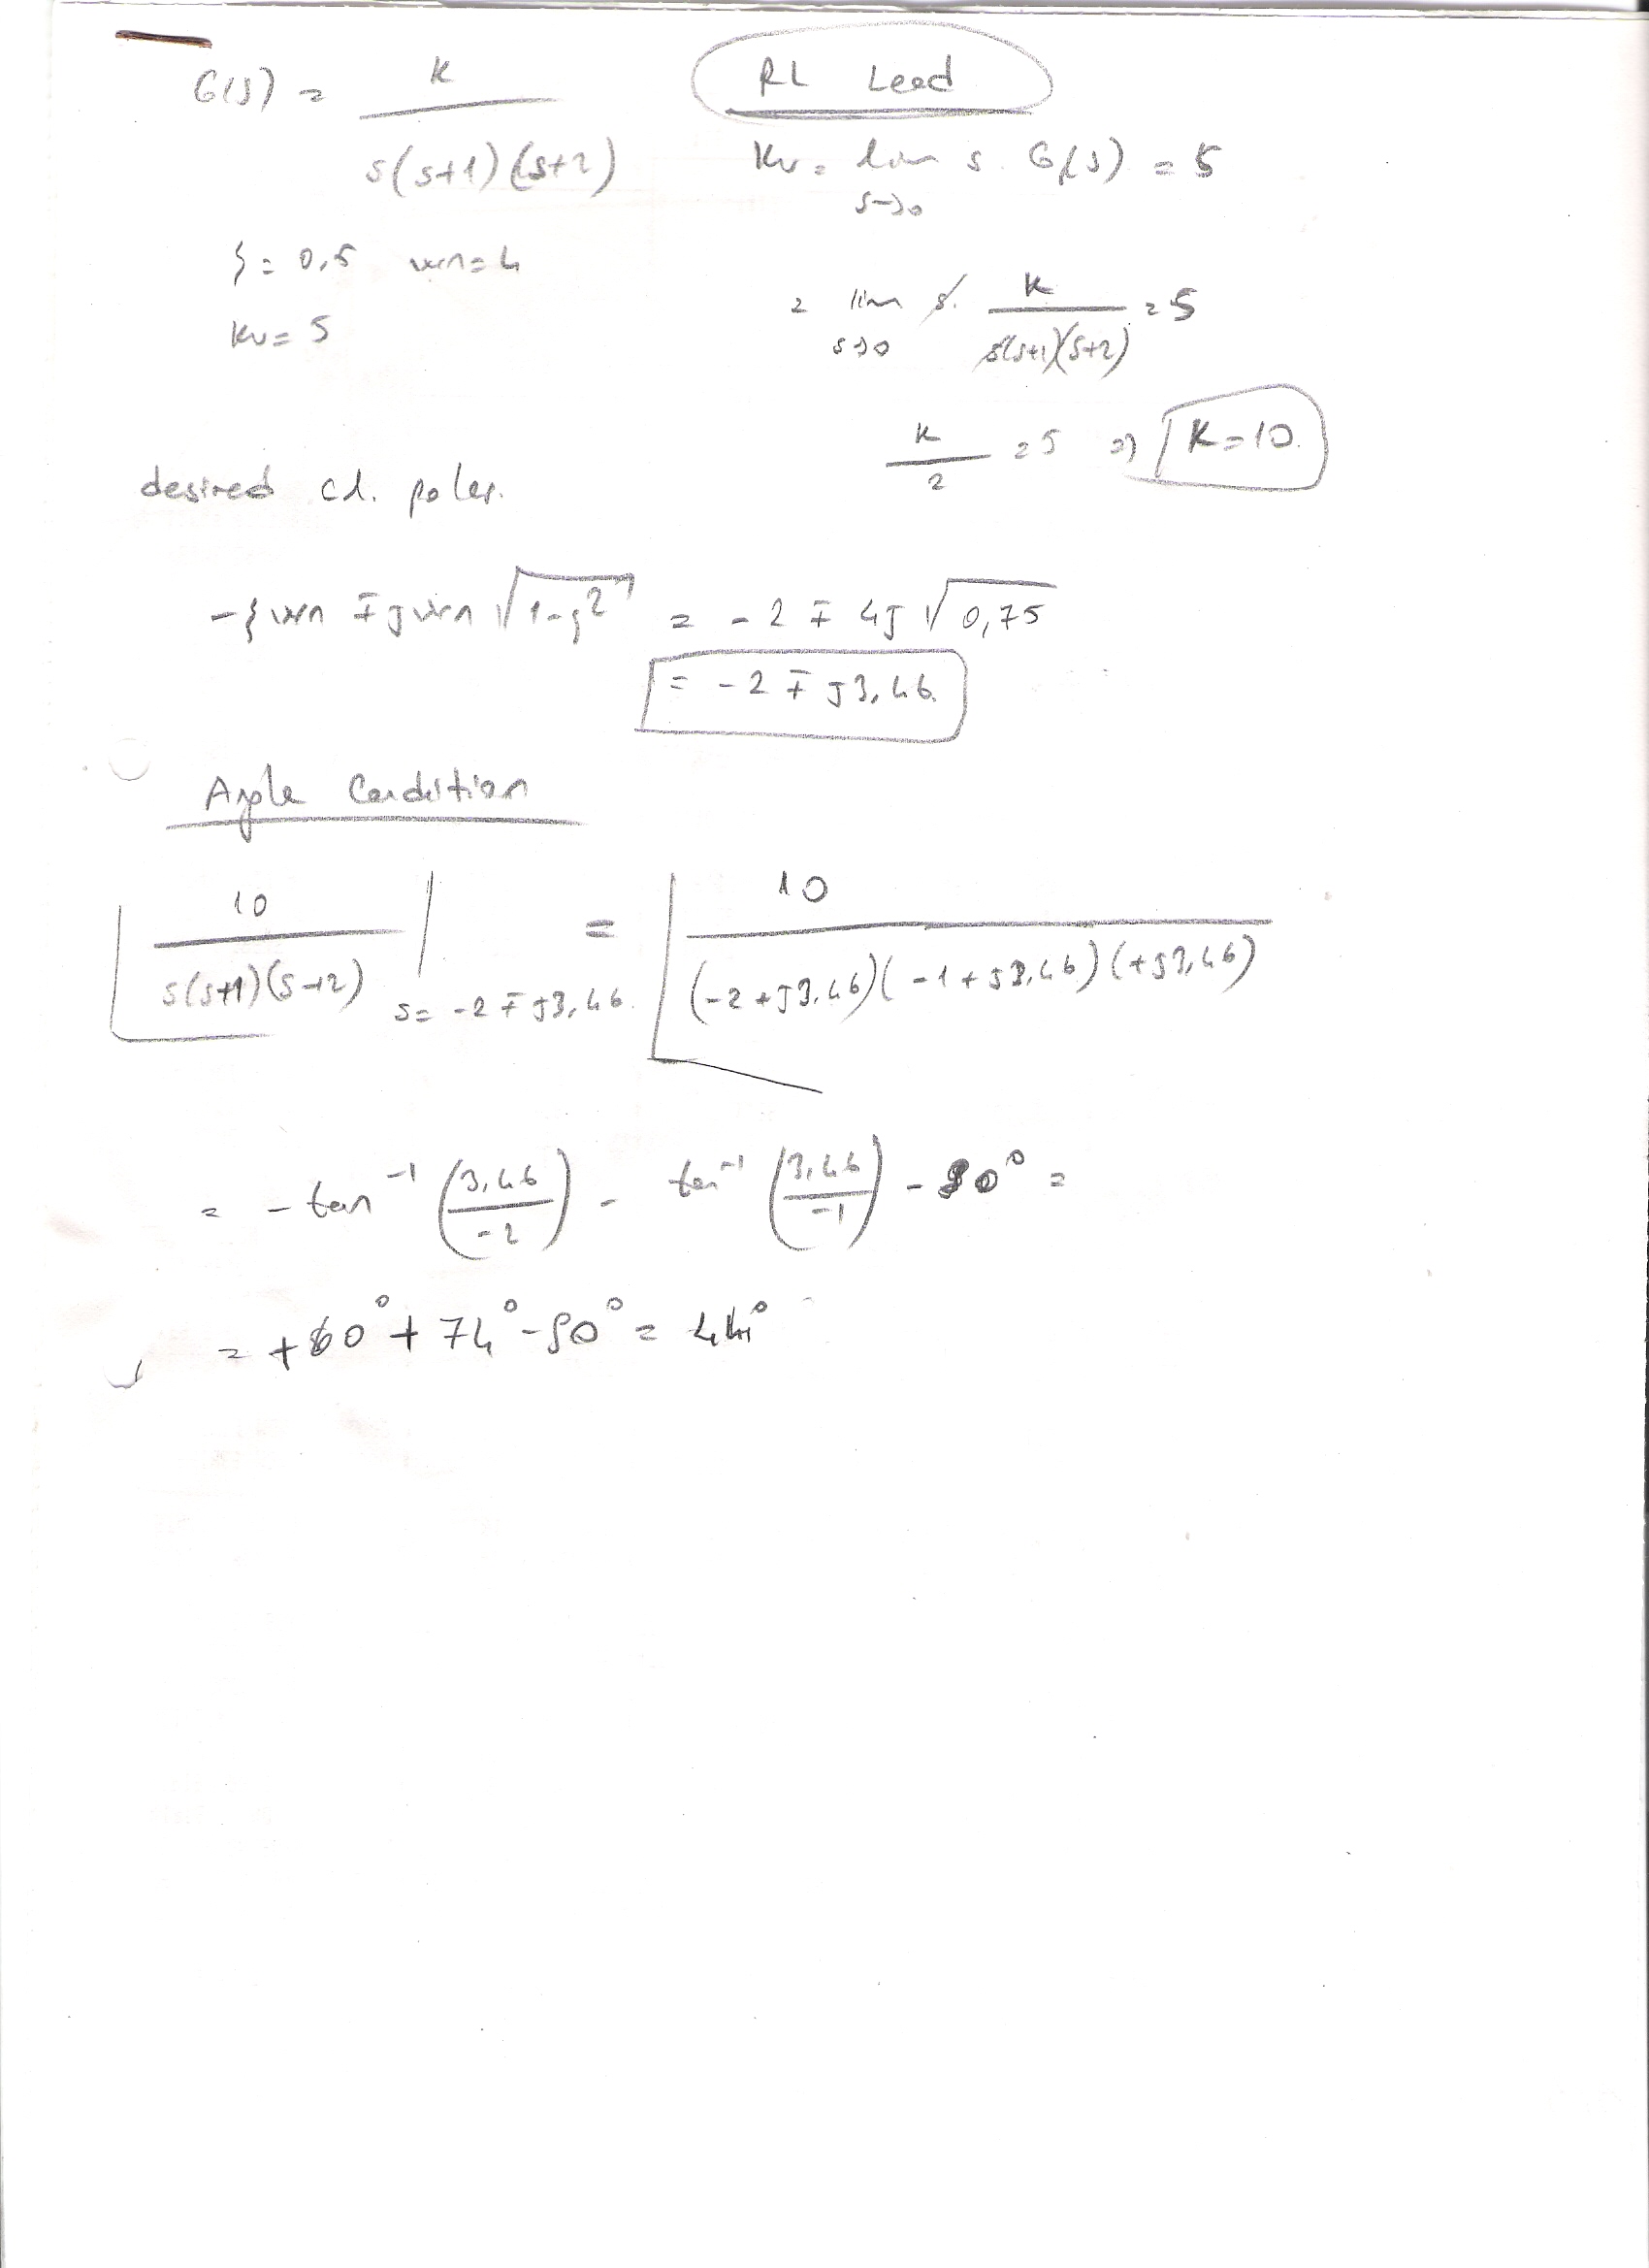 G(s) = K / s(s+1)(s+2)
RL Lead
Kv = lim s→0 s. G(s) = 5
ξ = 0,5 wn = 4
= lim s→0 s. K / s(s+1)(s+2) = 5
Kv = 5
K / 2 = 5 ⇒ K = 10.
desired cl. poles.
-ξwn ∓ jwn √1-ξ² = -2 ∓ 4j √0,75
= -2 ∓ j3,46
Angle Condition
∠ 10 / s(s+1)(s+2) | s = -2 ∓ j3,46. = ∠ 10 / (-2+j3.46)(-1+j3,46)(+j3,46)
= - tan⁻¹ (3,46 / -2) - tan⁻¹ (3,46 / -1) - 90° =
= +60° + 74° - 90° = 44°